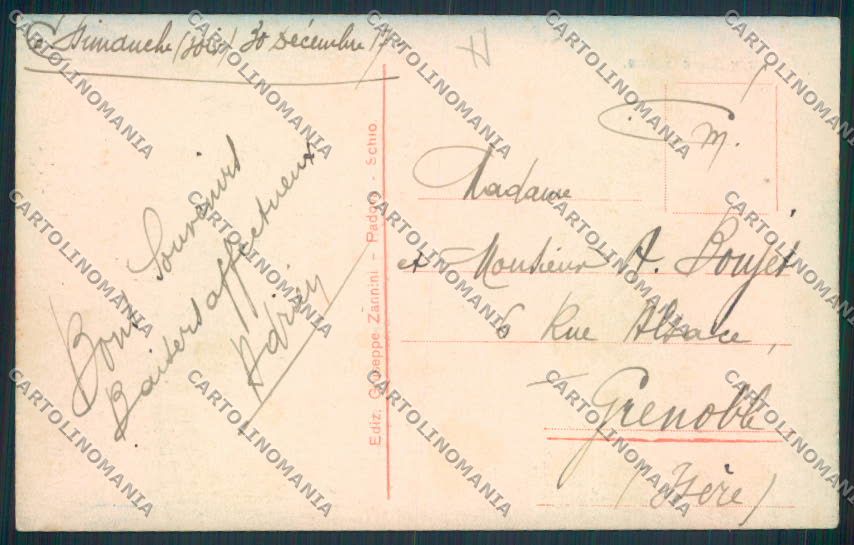 Le Dimanche (soir) 30 Décembre 17
Bons Souvenirs
Baisers affectueux
Adrien
Ediz. Giuseppe Zannini - Padova - Schio.
m.
Madame
et Monsieur A. Boujet
6 Rue Alsace,
Grenoble
(Isère)
CARTOLINOMANIA